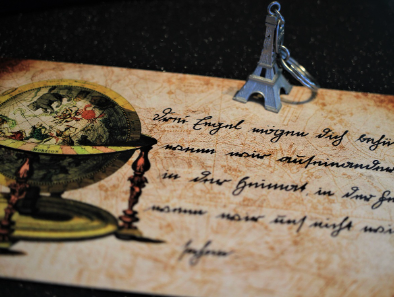 Drei Engel mögen dich behü
wenn wir auseinander
in der Heimat in der Fe
wenn wir uns nicht wi
sehen